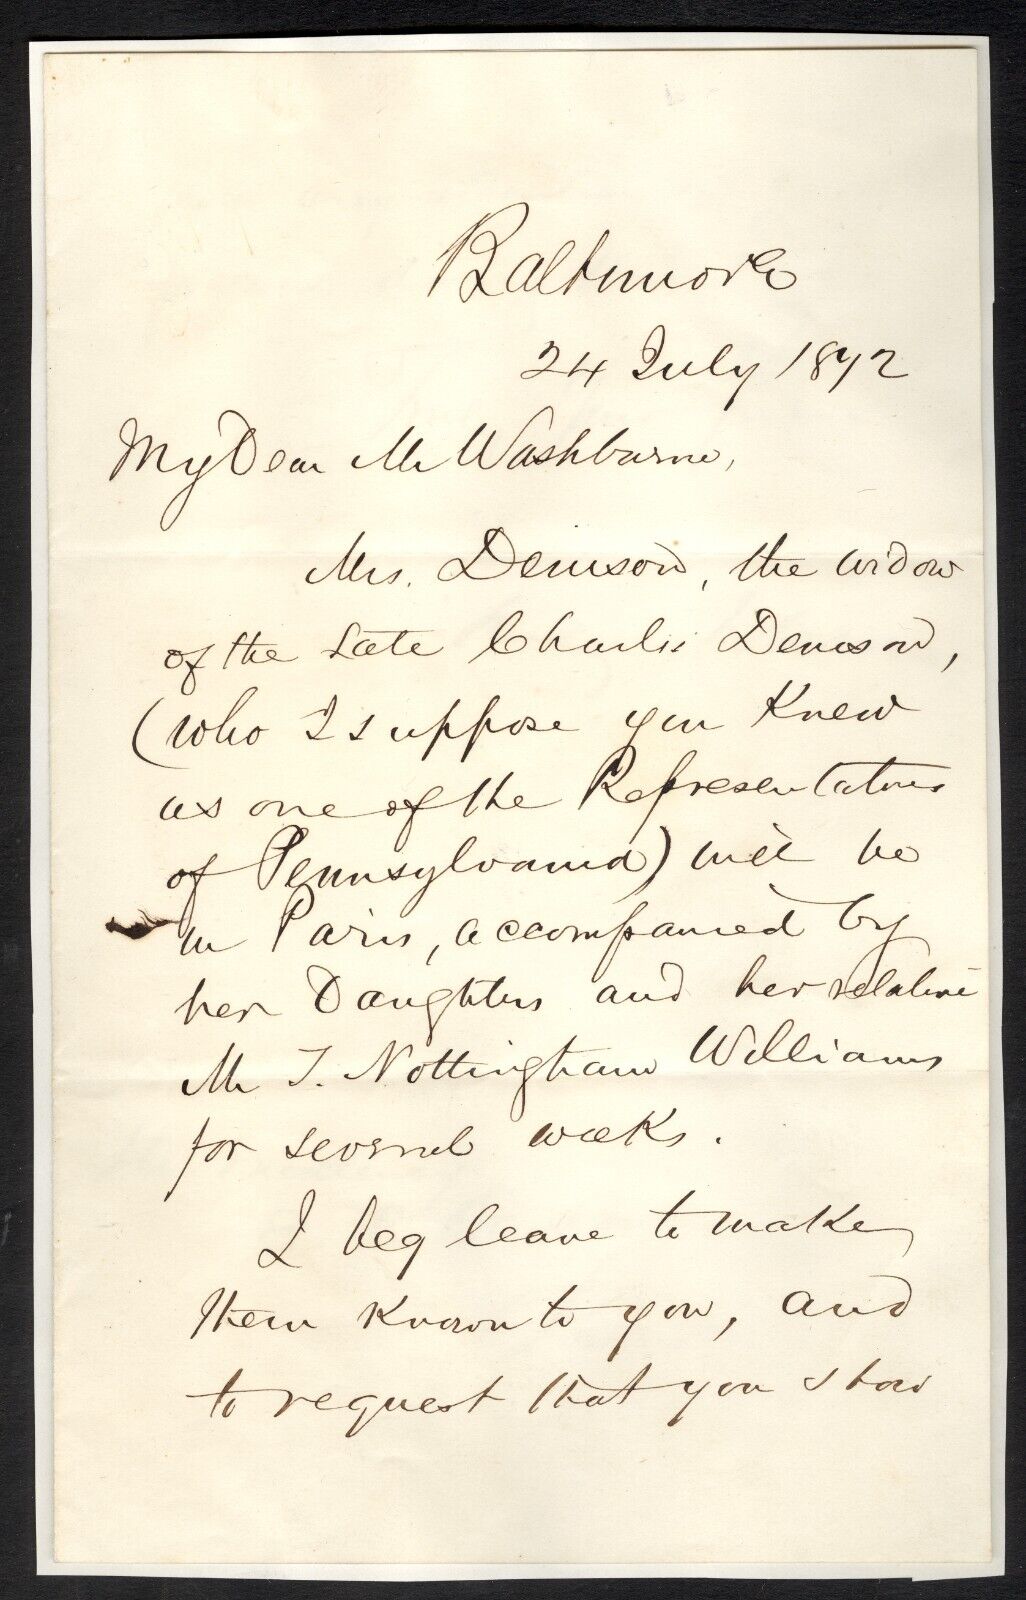 Baltimore
24 July 1872
My Dear Mr Washburne,
Mrs. Denison, the widow
of the Late Charles Denison,
(who I suppose you Knew
as one of the Representatives
of Pennsylvania) will be
in Paris, accompanied by
her Daughters and her relative
Mr J. Nottingham Williams
for several weeks.
I beg leave to make
them known to you, and
to request that you show